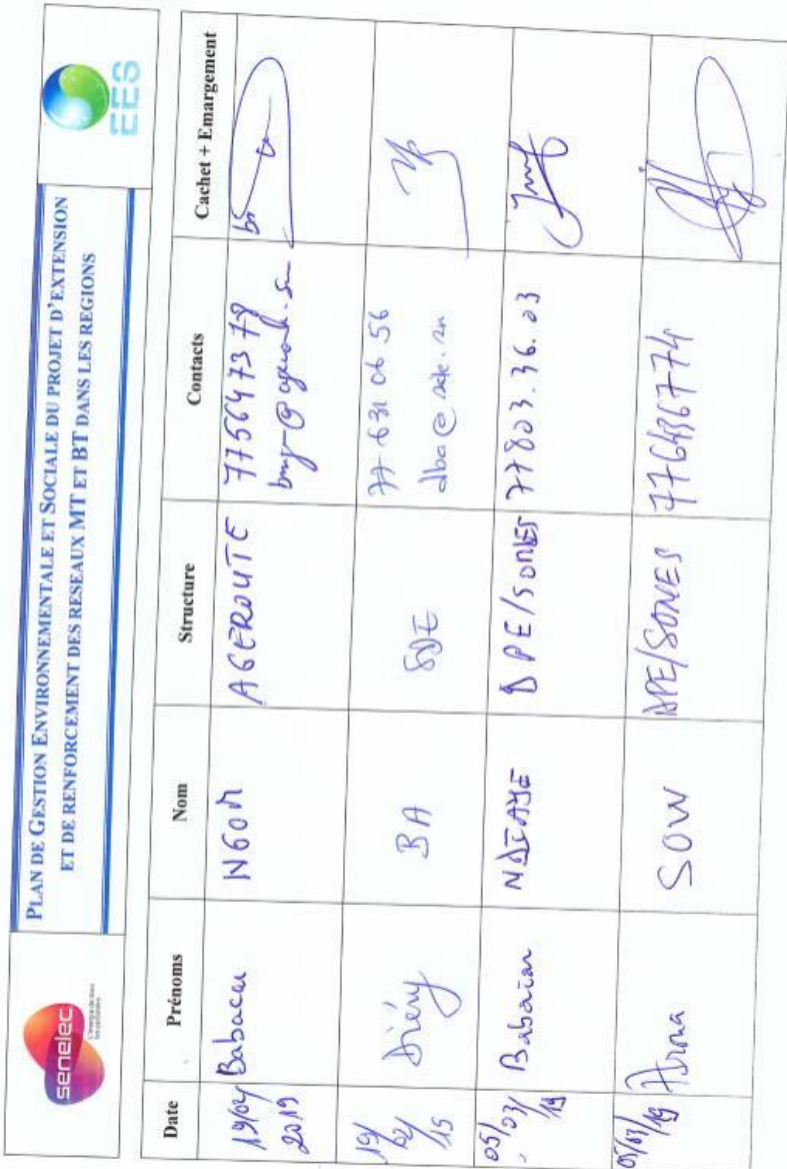 senelec
L'énergie de tous les possibles.
PLAN DE GESTION ENVIRONNEMENTALE ET SOCIALE DU PROJET D'EXTENSION
ET DE RENFORCEMENT DES RESEAUX MT ET BT DANS LES REGIONS
EES
Date Prénoms Nom Structure Contacts Cachet + Emargement
19/02/ 2019 Babacar NGOM AGEROUTE 775647379
19/ 02/ 19 Diény BA SDE 77 631 06 56
dba@sde.sn
05/03/ 19 Babacar NDIAYE DPE/SONES 77803.36.03
05/03/19 Arona SOW DPE/SONES 776436774